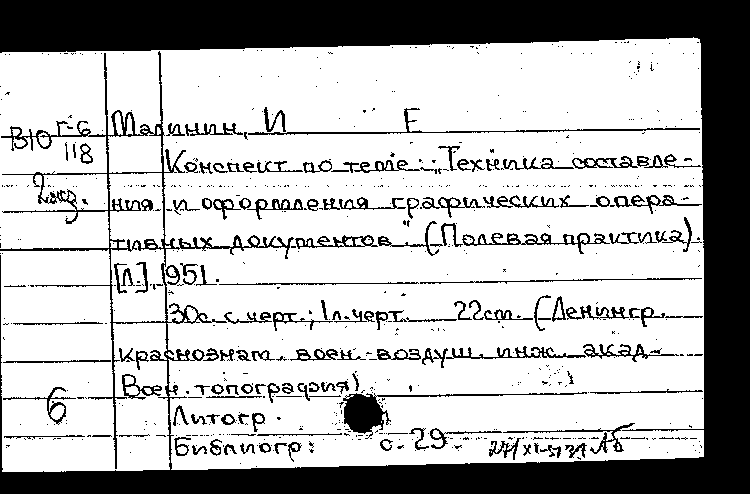 В10 Г-6 Малинин, И Е
118
Конспект по теме: „Техника составле-
2 экз.
ния и оформления графических опера-
тивных документов". (Полевая практика).
[Л.], 1951.
30с. с черт.; 1 л. черт. 22 см. (Ленингр.
краснознам. воен.-воздуш. инж. акад.
Воен. топография)
6
Литогр.
Библиогр: с. 29.